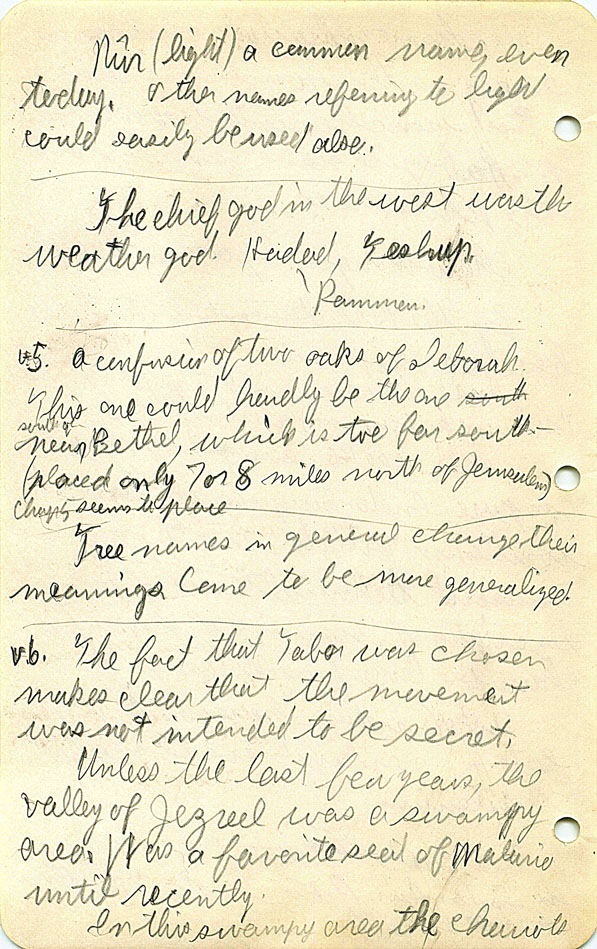 Nûr (light) a common name, even
today. Other names referring to light
could easily be used also.
The chief god in the west was th
weather god. Hadad, Teshup.
Rammon.
v5. A confusion of two oaks of Deborah.
This one could hardly be the one south
south of
near Bethel, which is too far south—
(placed only 7 or 8 miles north of Jerusalem)
Chap 5 seems to place
Tree names in general change their
meanings. Come to be more generalized.
v6. The fact that Tabor was chosen
makes clear that the movement
was not intended to be secret.
Unless the last few years, the
valley of Jezreel was a swampy
area. Was a favorite seat of Malaria
until recently.
In this swampy area the chariots